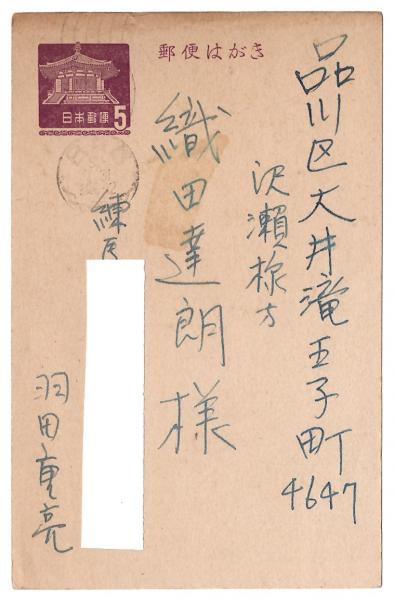 郵便はがき
日本郵便
5
品川区大井滝王子町
4647
沢瀬様方
織田達朗様
練馬
羽田重亮